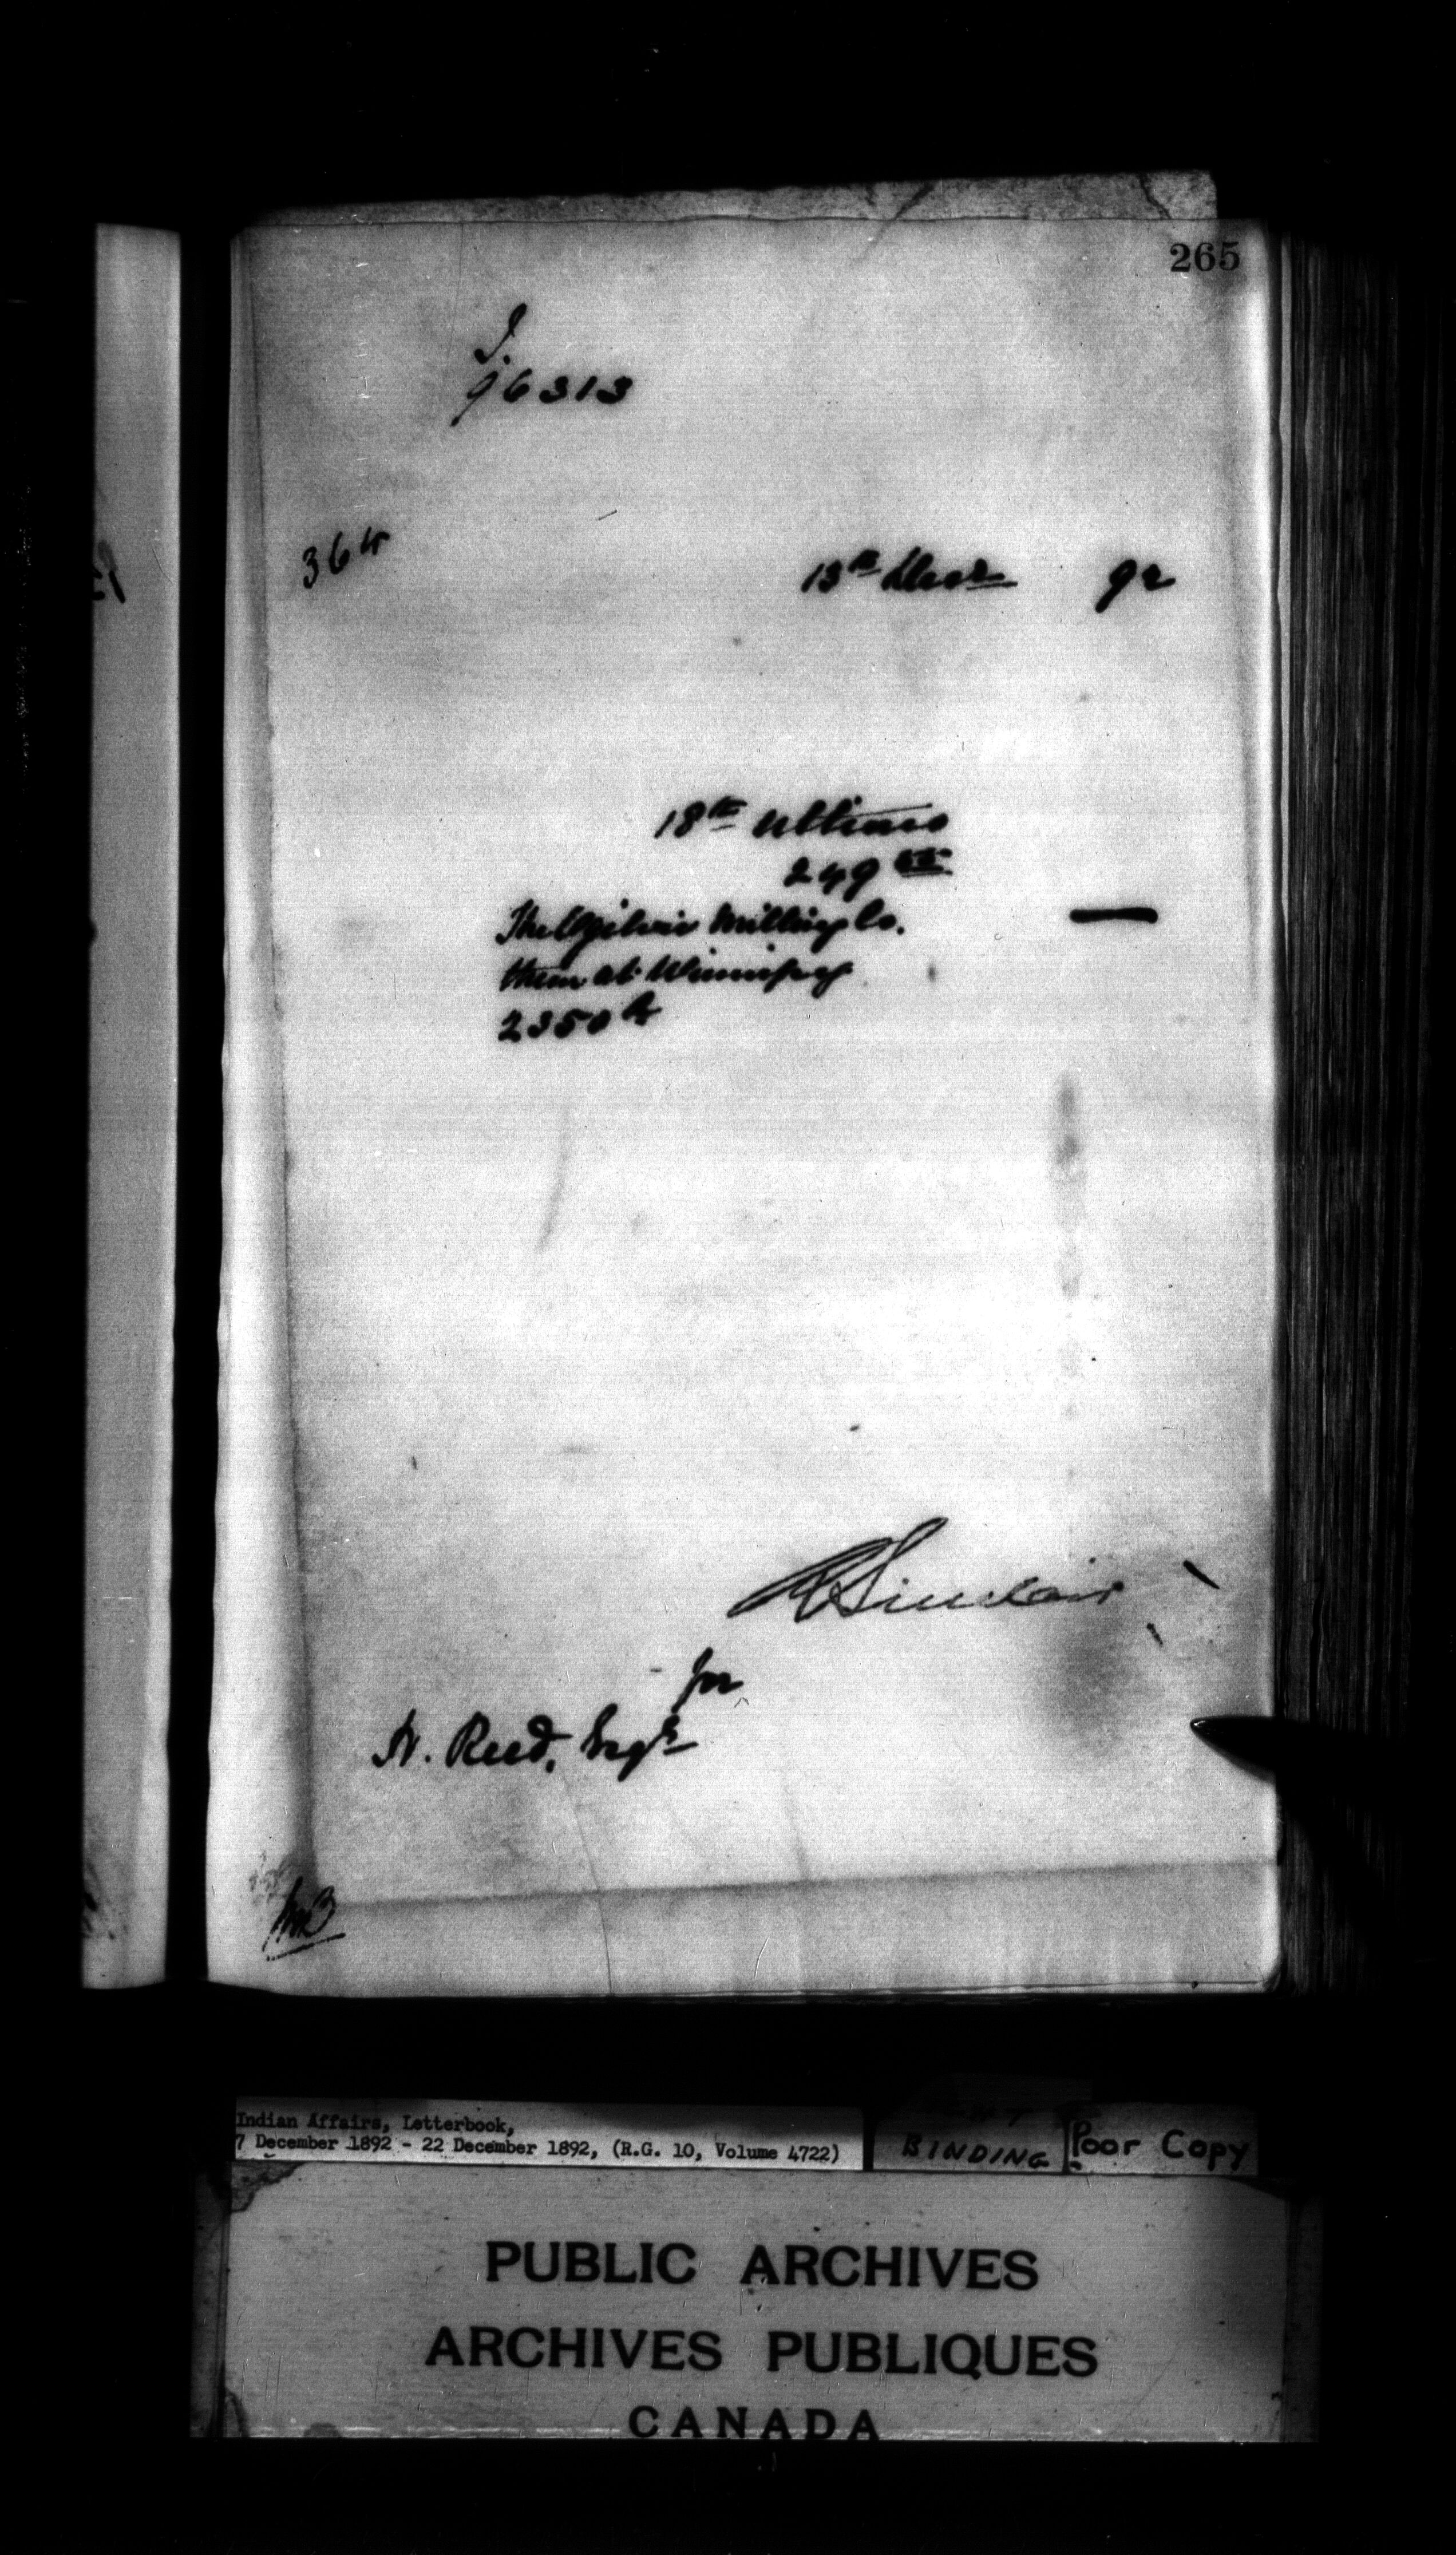 265
J.
96313
364
13th Decr 92
18th ultimo
249
The Ogilvie Milling Co.
them at Winnipeg
2350
R Sinclair
for
H. Reed, Esqr
Indian Affairs, Letterbook,
7 December 1892 - 22 December 1892, (R.G. 10, Volume 4722)
BINDING
Poor Copy
PUBLIC ARCHIVES
ARCHIVES PUBLIQUES
CANADA